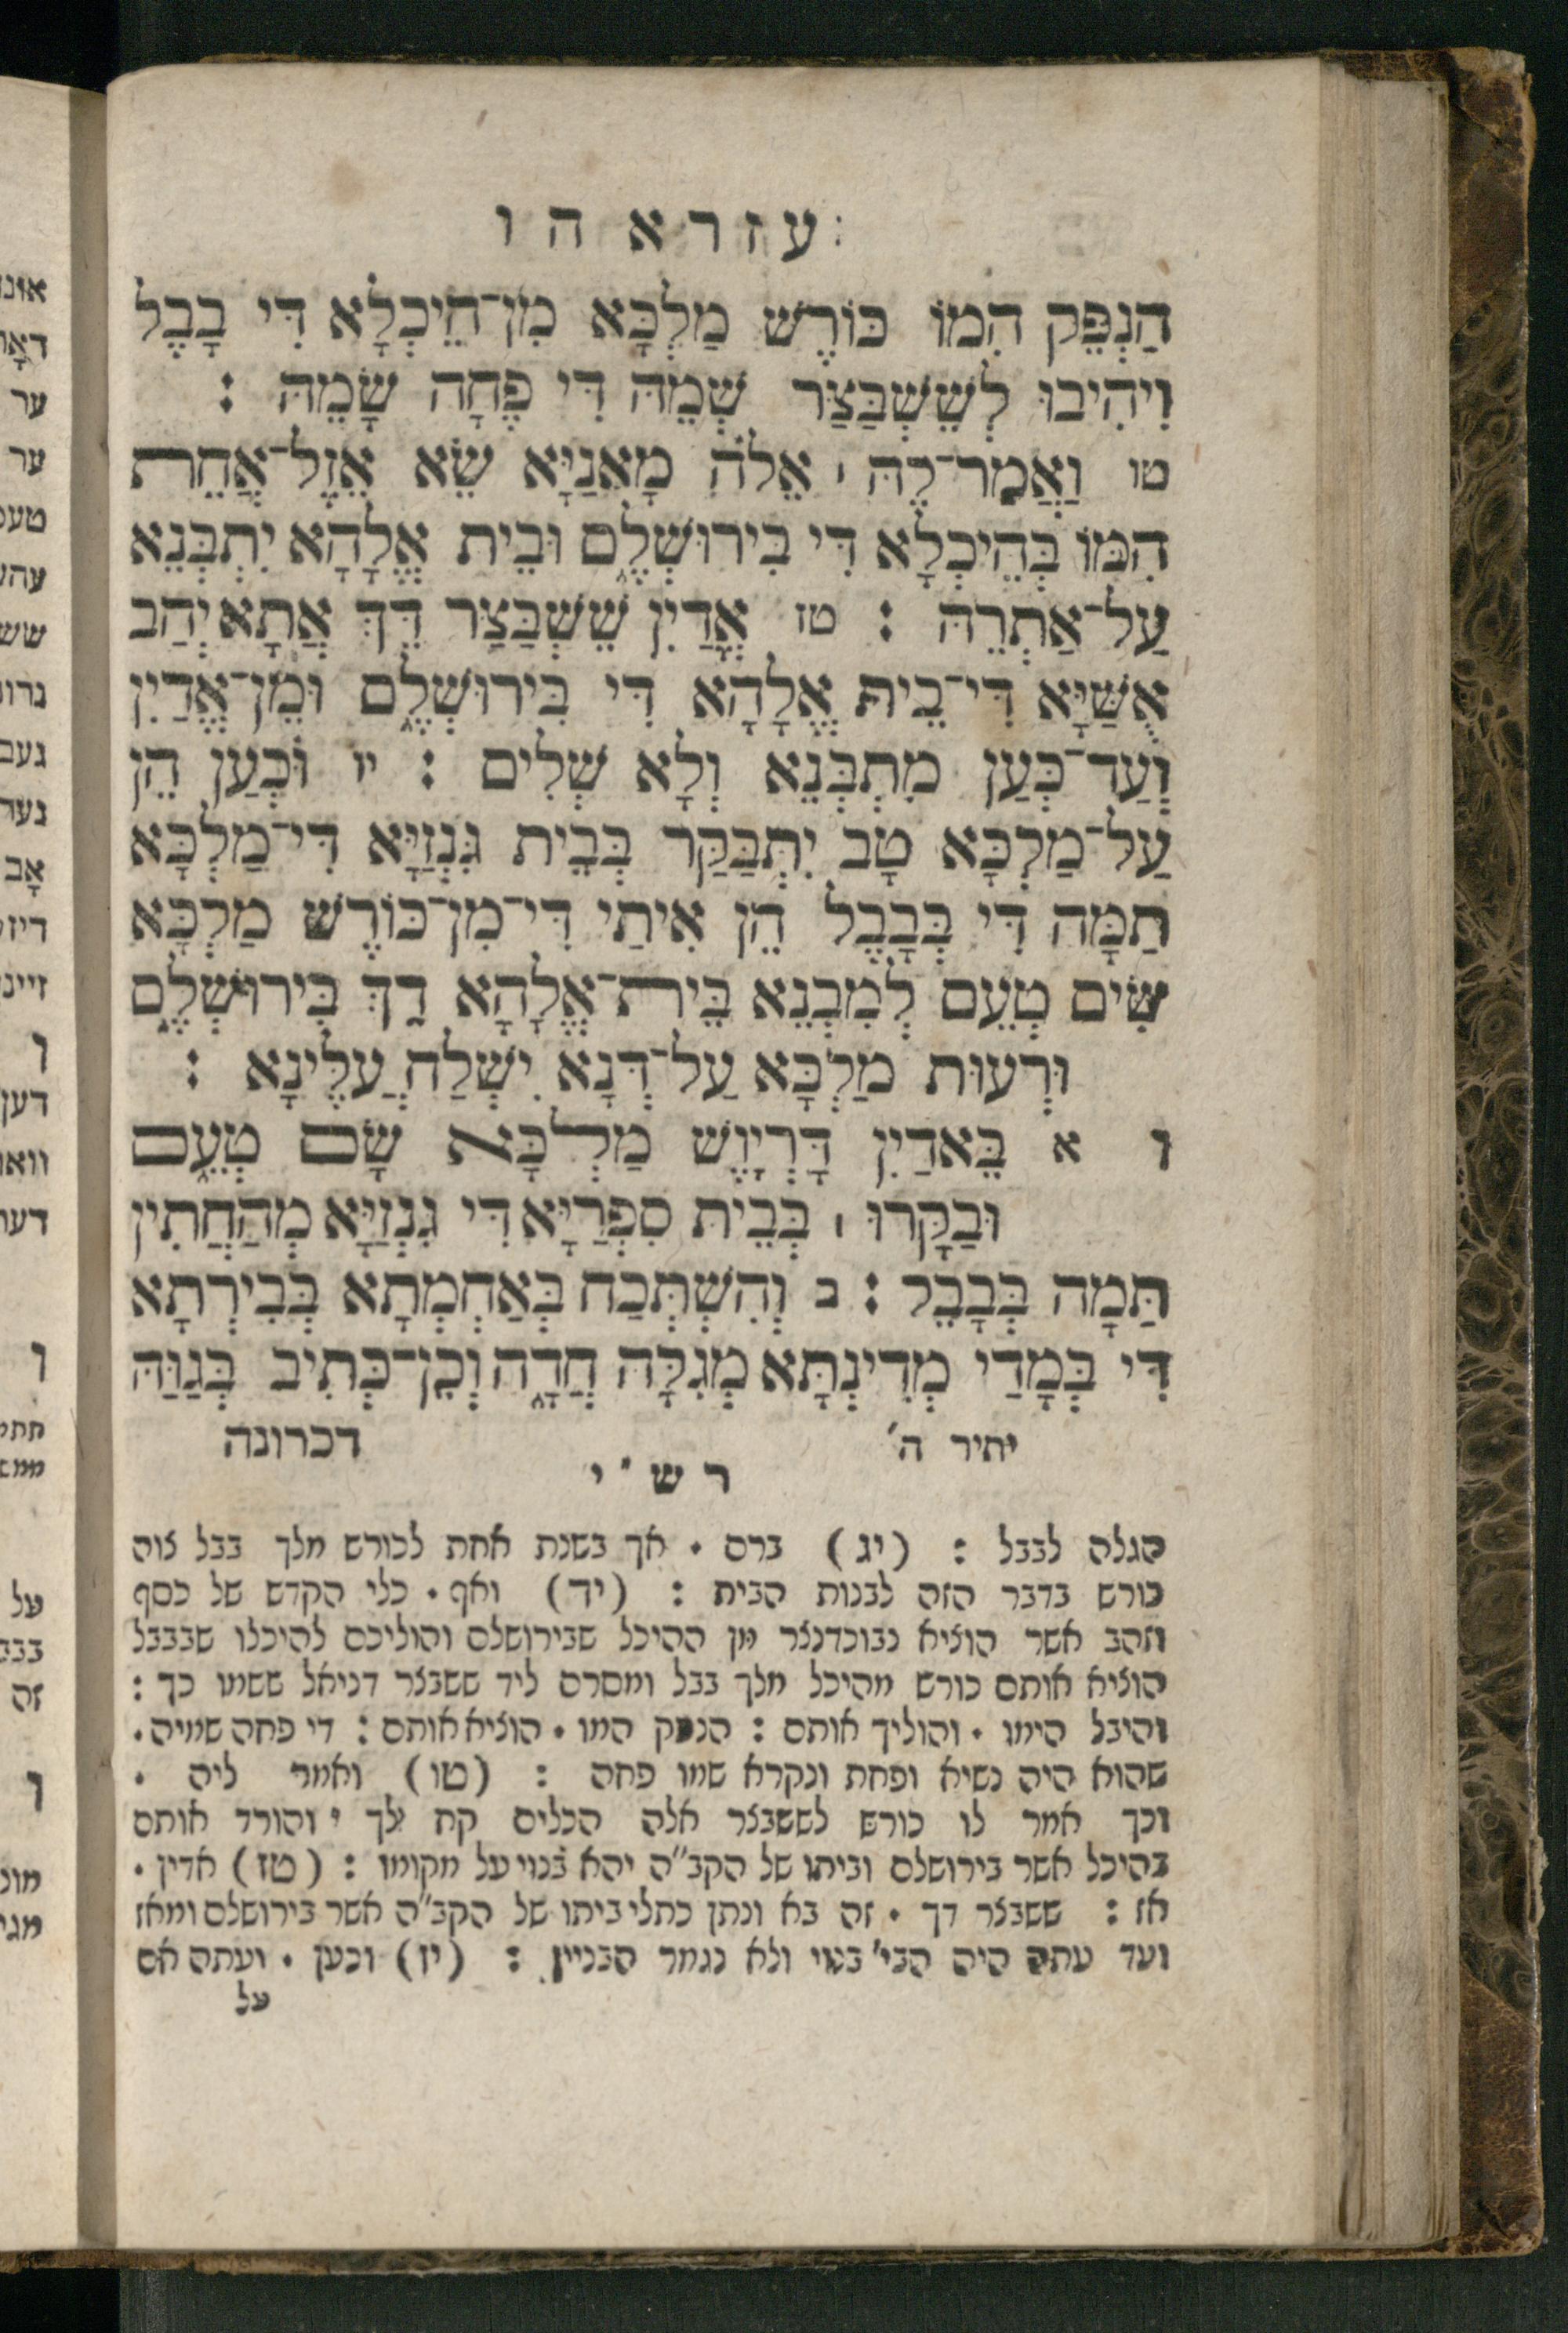 עזרא ה ו
הַנְפֵּק הִמּוֹ כּוֹרֶשׁ מַלְכָּא מִן־הֵיכְלָא דִּי בָבֶל
וִיהִיבוּ לְשֵׁשְׁבַּצַּר שְׁמֵהּ דִּי פֶחָה שָׂמֵהּ :
טו וַאֲמַר־לֵהּ ׀ אֵלֶּה מָאנַיָּא שֵׂא אֵזֶל־אֲחֵת
הִמּוֹ בְּהֵיכְלָא דִּי בִירוּשְׁלֶם וּבֵית אֱלָהָא יִתְבְּנֵא
עַל־אַתְרֵהּ : טז אֱדַיִן שֵׁשְׁבַּצַּר דֵּךְ אֲתָא יְהַב
אֻשַּׁיָּא דִּי־בֵית אֱלָהָא דִּי בִּירוּשְׁלֶם וּמִן־אֱדַיִן
וְעַד־כְּעַן מִתְבְּנֵא וְלָא שְׁלִים : יז וּכְעַן הֵן
עַל־מַלְכָּא טָב יִתְבַּקַּר בְּבֵית גִּנְזַיָּא דִּי־מַלְכָּא
תַמָּה דִּי בְּבָבֶל הֵן אִיתַי דִּי־מִן־כּוֹרֶשׁ מַלְכָּא
שִׂים טְעֵם לְמִבְנֵא בֵּית־אֱלָהָא דֵךְ בִּירוּשְׁלֶם
וּרְעוּת מַלְכָּא עַל־דְּנָא יִשְׁלַח עֲלֶינָא :
ו א בֵּאדַיִן דָּרְיָוֶשׁ מַלְכָּא שָׂם טְעֵם
וּבַקָּרוּ ׀ בְּבֵית סִפְרַיָּא דִּי גִנְזַיָּא מְהַחֲתִין
תַּמָּה בְּבָבֶל : ב וְהִשְׁתְּכַח בְּאַחְמְתָא בְּבִירְתָא
דִּי בְּמָדַי מְדִינְתָּא מְגִלָּה חֲדָה וְכֵן־כְּתִיב בְּגַוַּהּ
יתיר ה' דכרונה
רש"י
הגלה לבבל : (יג) ברם • אך בשנת אחת לכורש מלך בבל צוה
כורש בדבר הזה לבנות הבית : (יד) ואף • כלי הקדש של כסף
וזהב אשר הוציא נבוכדנצר מן ההיכל שבירושלם והוליכם להיכלו שבבבל
הוציא אותם כורש מהיכל מלך בבל ומסרם ליד ששבצר דניאל ששמו כך :
והיבל הימו • והוליך אותם : הנפק המו • הוציא אותם : די פחה שמיה •
שהוא היה נשיא ופחת ונקרא שמו פחה : (טו) ואמר ליה •
וכך אמר לו כורש לששבצר אלה הכלים קח לך והורד אותם
בהיכל אשר בירושלם וביתו של הקב"ה יהא בנוי על מקומו : (טז) אדין •
אז : ששבצר דך • זה בא ונתן כתלי ביתו של הקב"ה אשר בירושלם ומאז
ועד עתה היה הבי' בנוי ולא נגמר הבניין : (יז) וכען • ועתה אם
על